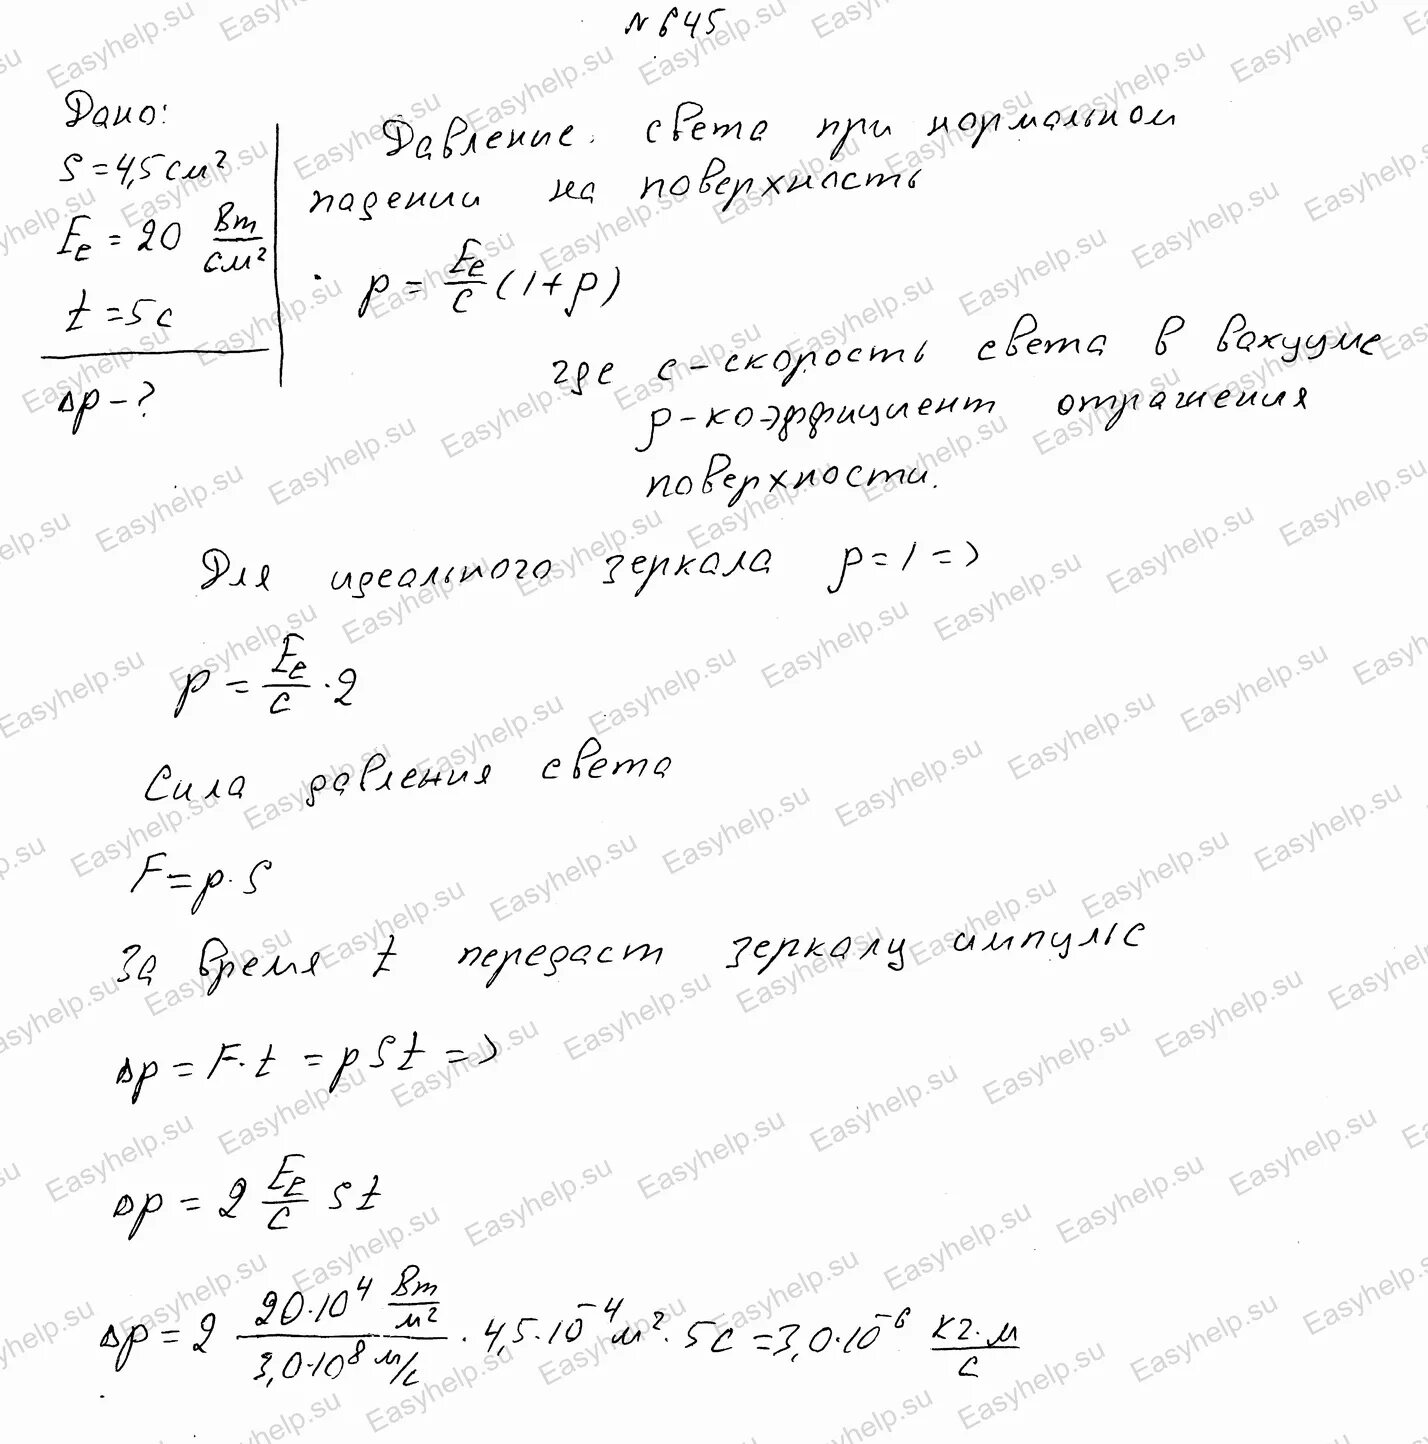 N 645
Дано:
S = 4,5 см²
Ee = 20 Вт/см²
t = 5 с
Δp - ?
Давление света при нормальном
падении на поверхность
p = Ee/c (1 + ρ)
где c - скорость света в вакууме
ρ - коэффициент отражения
поверхности.
Для идеального зеркала ρ = 1 =>
p = Ee/c · 2
Сила давления света
F = p · S
За время t передаст зеркалу импульс
Δp = F · t = p S t =>
Δp = 2 Ee/c S t
Δp = 2 20·10⁴ Вт/м² / 3,0·10⁸ м/с · 4,5·10⁻⁴ м² · 5 с = 3,0·10⁻⁶ кг·м/с
Easyhelp.su